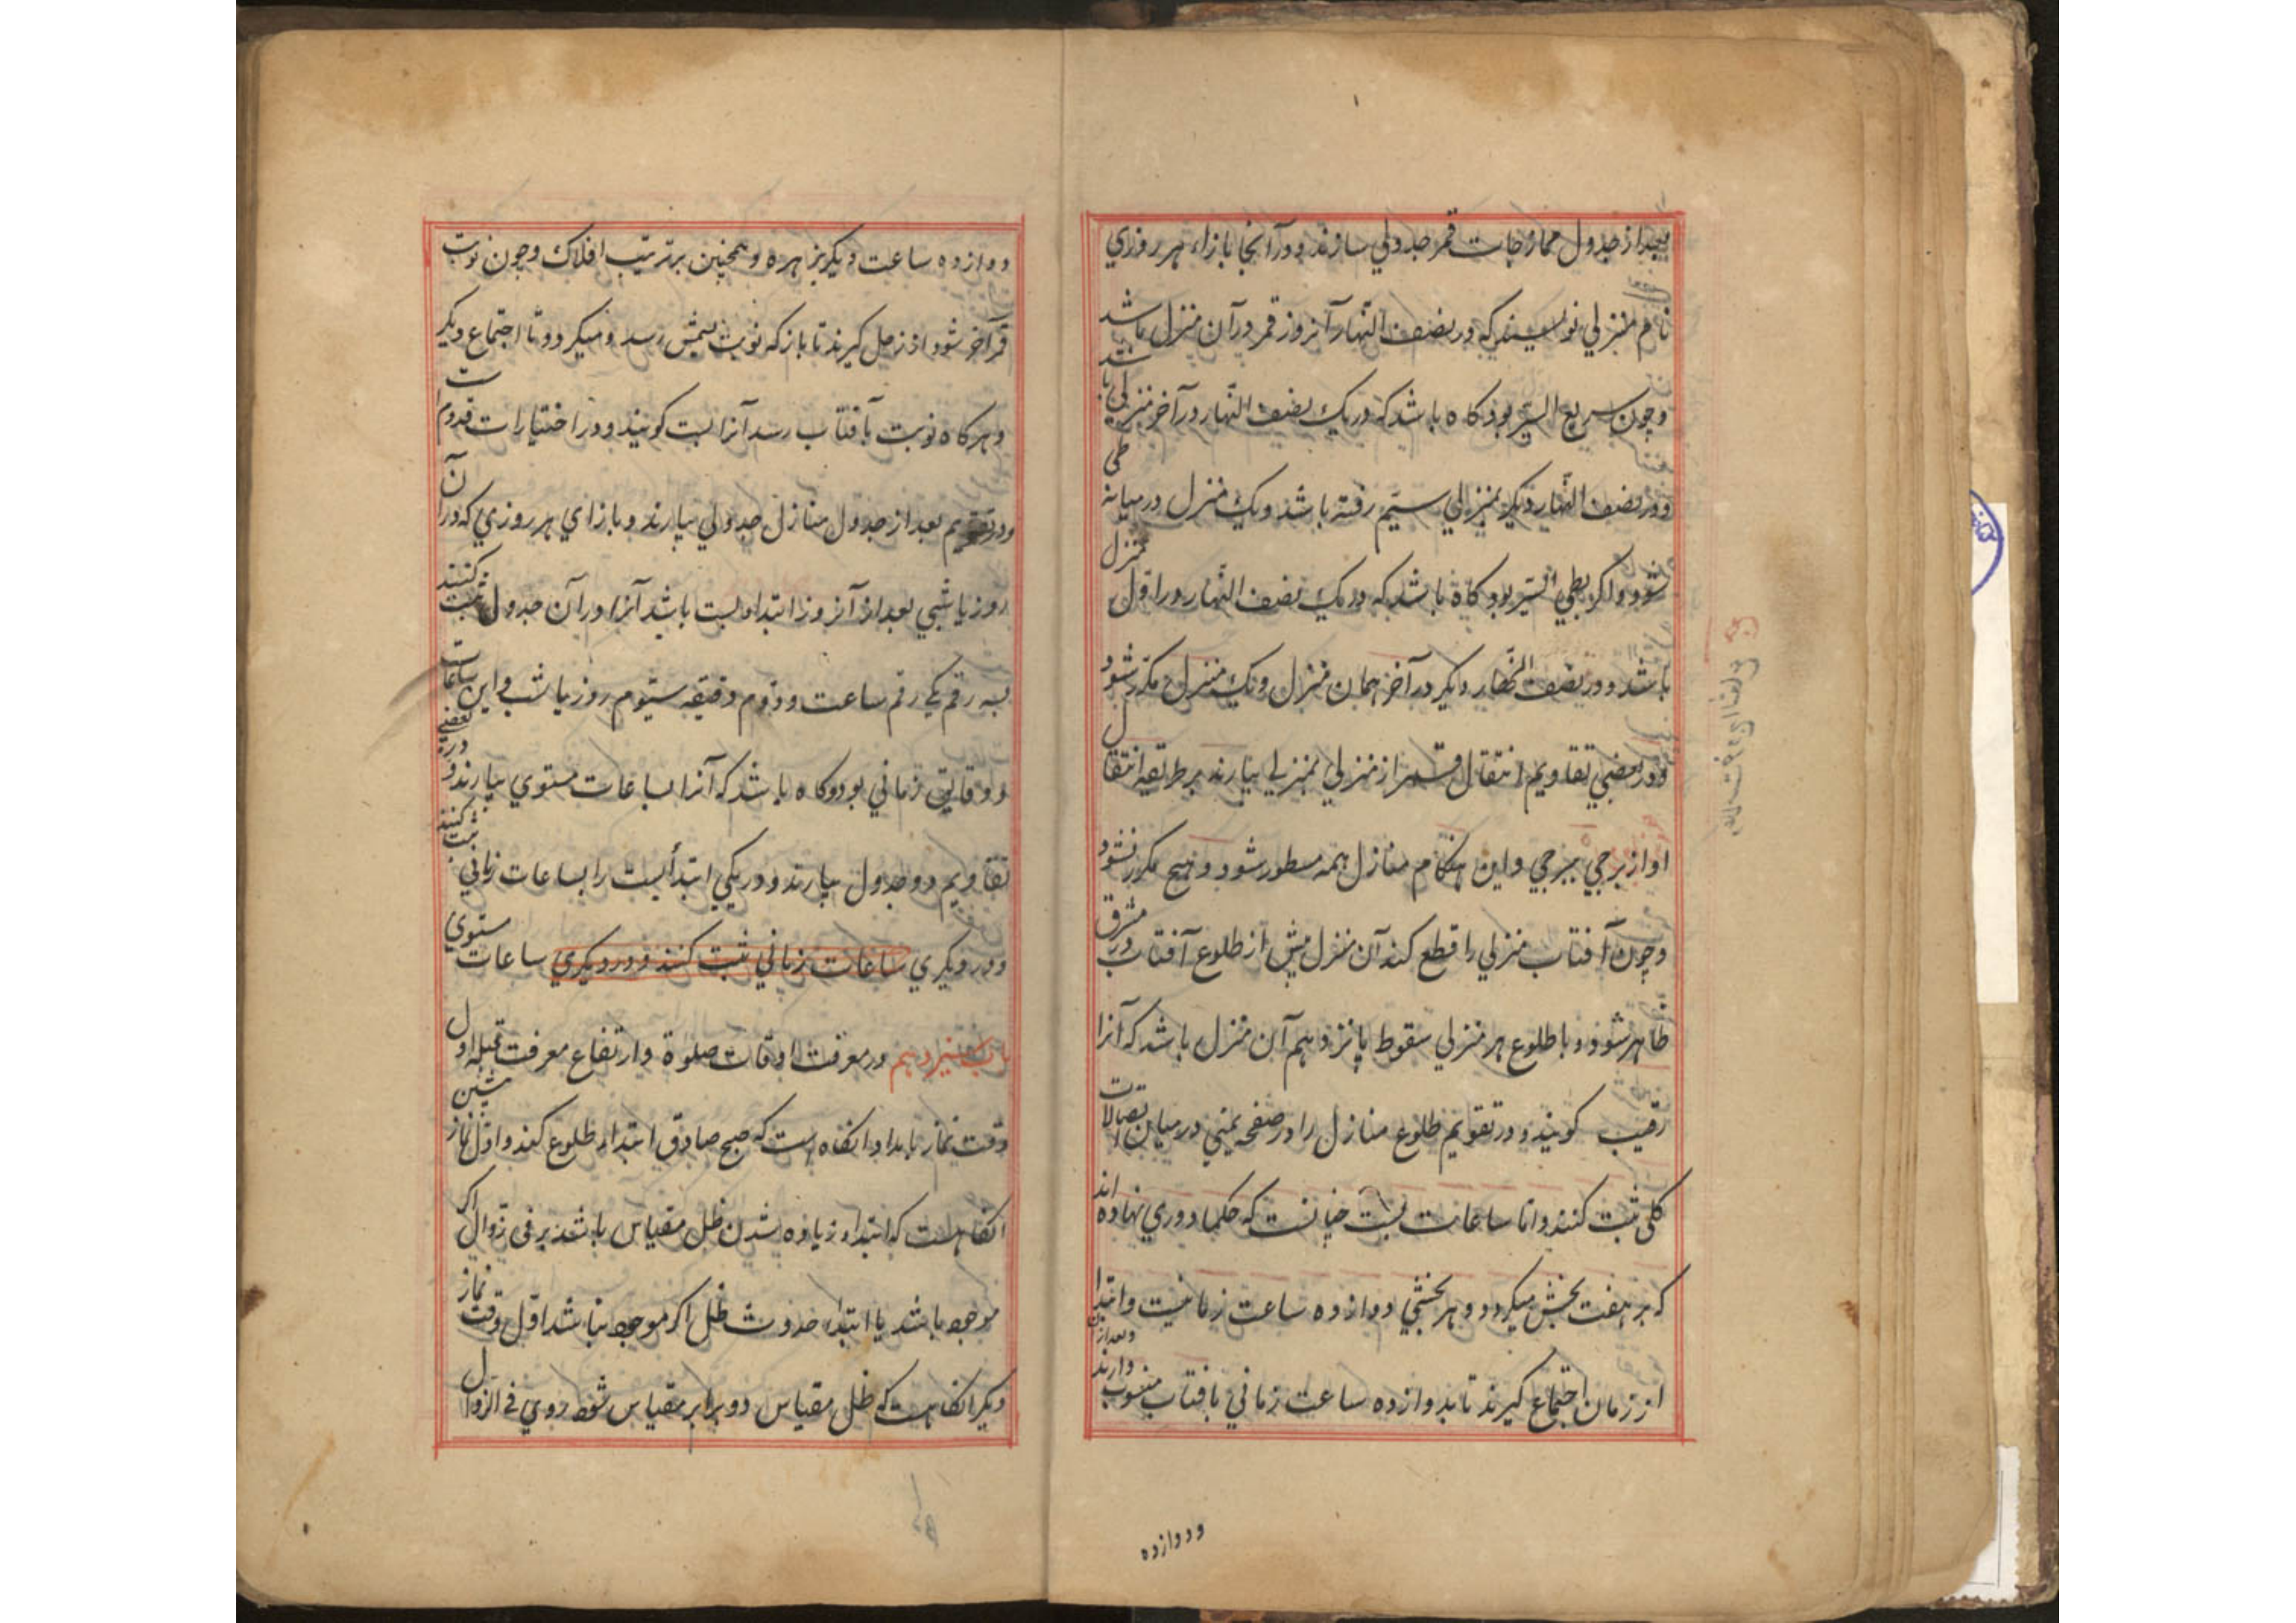 بعد از جدول ممازجات قمر جدولي سازند و در آنجا بازاء هر روزي
نام منزلي نويسند كه در نصف النهار آنروز قمر در آن منزل باشد
و چون سريع السير بود كاه باشد كه در يك نصف النهار در آخر منزلي باشد
و در نصف النهار ديكر بمنزلي سيم رفته باشد و يك منزل در ميانه طي
شود و اكر بطي السير بود كاه باشد كه در يك نصف النهار در اول منزل
باشد و در نصف النهار ديكر در آخر همان منزل و يك منزل مكرر شود
و در بعضي تقاويم انتقال قمر از منزلي بمنزلي بيارند بر طريقه انتقال
او از برجي ببرجي و اين هنكام منازل همه مسطور شود و هيچ مكرر نشود
و چون آفتاب منزلي را قطع كند آن منزل پيش از طلوع آفتاب در مشرق
ظاهر شود و با طلوع هر منزلي سقوط پانزدهم آن منزل باشد كه آنرا
رقيب كويند و در تقويم طلوع منازل را در صفحه يمني در ميان اتصالات
كلي ثبت كنند و اما ساعات بست چنانست كه حكما دوري نهاده اند
كه بر هفت بخش ميكردد و هر بخشي دوازده ساعت زمانيست و ابتدا
از زمان اجتماع كيرند تا بدوازده ساعت زماني بافتاب منسوب دارند و بعد از آن
و دوازده
دوازده ساعت ديكر بزهره و همچنين بر ترتيب افلاك و چون نوبت
قمر آخر شود از زحل كيرند تا باز كه نوبت بشمس رسد و ميكردد تا اجتماع ديكر
و هر كاه نوبت بآفتاب رسد آنرا بست كويند و در اختيارات مذموم است
و در تقويم بعد از جدول منازل جدولي بيارند و بازاي هر روزي كه در آن
روز يا شبي بعد از آنروز ابتداء بست باشد آنرا در آن جدول ثبت كنند
بسه رقم يكي رقم ساعت و دوم دقيقه سيوم روز يا شب و اين ساعات
و دقايق زماني بود و كاه باشد كه آنرا بساعات مستوي بيارند و در بعضي
تقاويم دو جدول بيارند و در يكي ابتداء بست را بساعات زماني ثبت كنند
و در ديكري ساعات زماني ثبت كنند و در ديكري ساعات مستوي
باب سيزدهم در معرفت اوقات صلوة و ارتفاع معرفت قبله اول
وقت نماز بامداد انكاه است كه صبح صادق ابتداء طلوع كند و اول نماز پيشين
انكاهست كه ابتداء زياده شدن ظل مقياس باشد بر في زوال اكر
موجود باشد يا ابتداء حدوث ظل اكر موجود نباشد اول وقت نماز
ديكر انكاهست كه ظل مقياس دو برابر مقياس شود سوي في الزوال